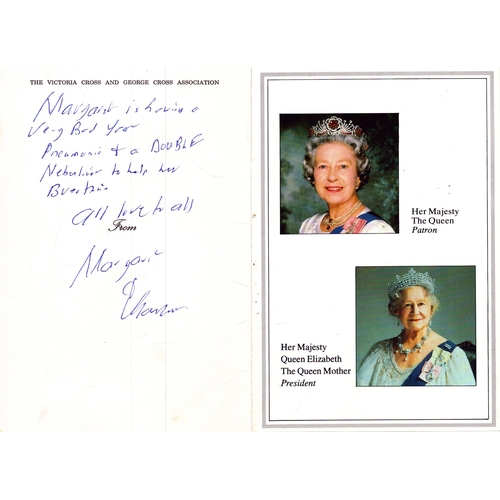 THE VICTORIA CROSS AND GEORGE CROSS ASSOCIATION
Margaret is having a
Very Bad Year
Pneumonia & a DOUBLE
Nebuliser to help her
all love to all
From
Margaret
Her Majesty
The Queen
Patron
Her Majesty
Queen Elizabeth
The Queen Mother
President